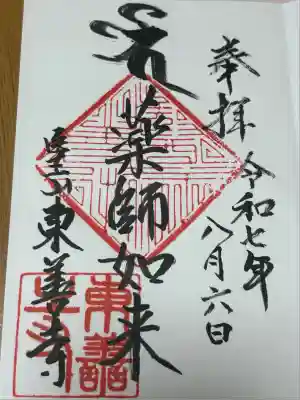 奉拝
令和七年
八月六日
薬師如来
東善寺
東善